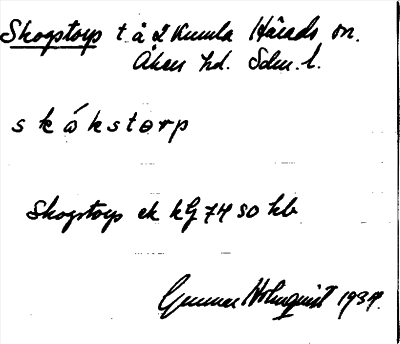 Skogstorp t. å 2 Kumla Härads sn.
Åkers hd. Sdm. l.
skókstorp
Skogstorp ek kG 74 SO hb
Gunnar Holmquist 1934.